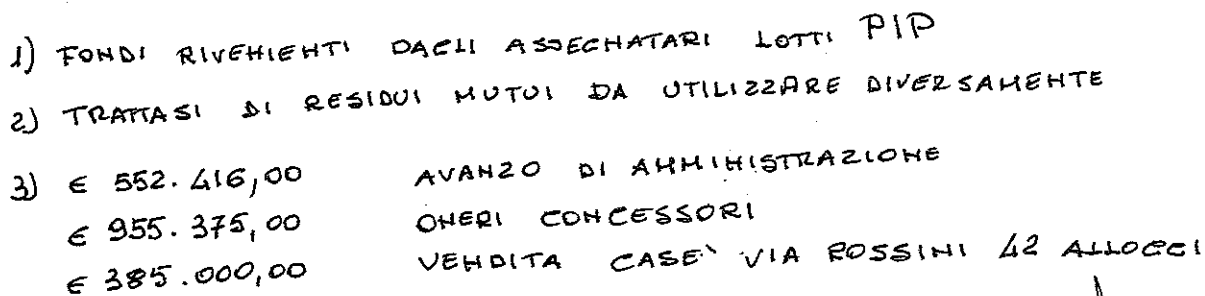 1) FONDI RIVENIENTI DAGLI ASSEGNATARI LOTTI PIP
2) TRATTASI DI RESIDUI MUTUI DA UTILIZZARE DIVERSAMENTE
3) € 552.416,00 AVANZO DI AMMINISTRAZIONE
€ 955.375,00 ONERI CONCESSORI
€ 385.000,00 VENDITA CASE' VIA ROSSINI 42 ALLOGGI